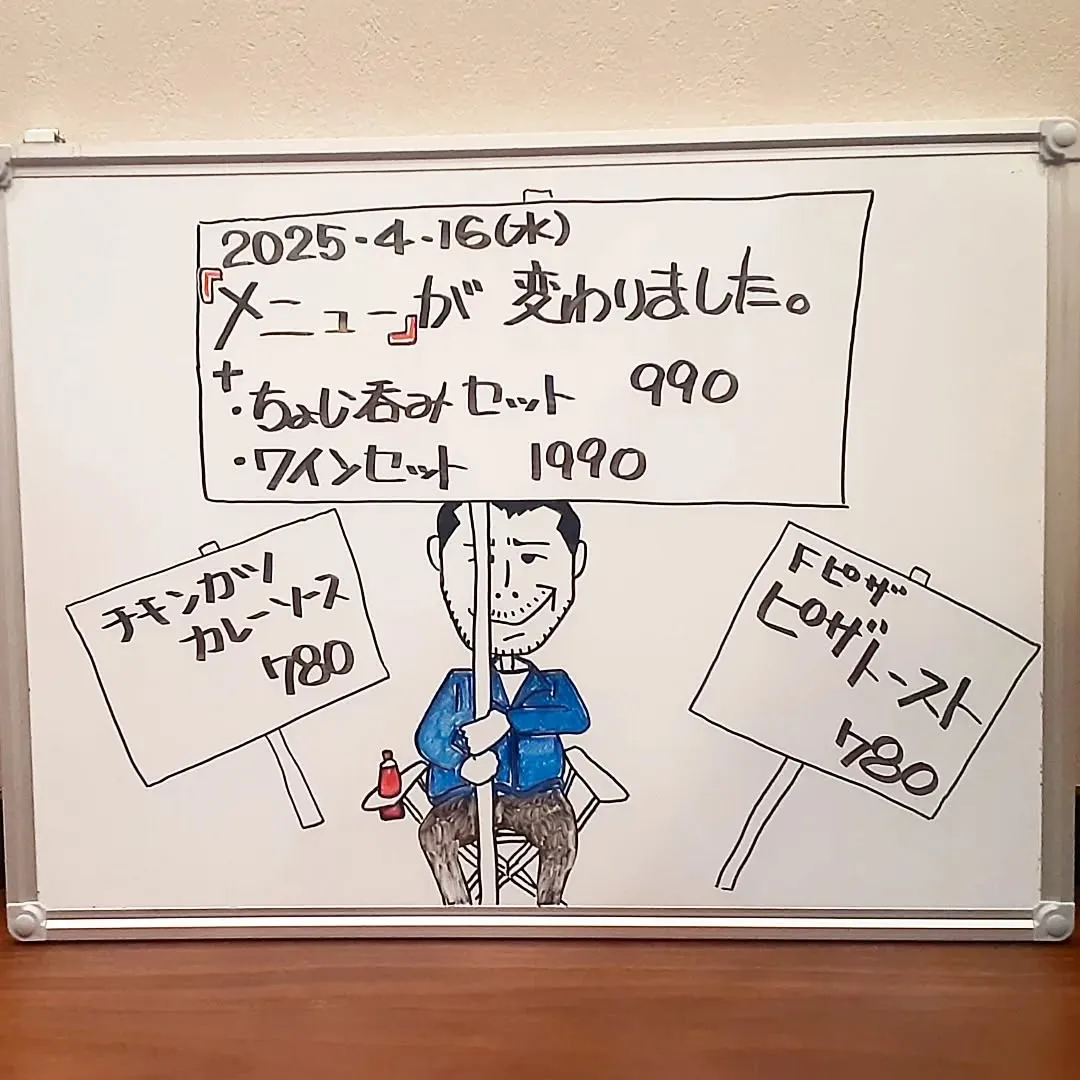 2025.4.16(水)
『メニュー』が変わりました。
+
・ちょい呑みセット 990
・ワインセット 1990
チキンカツ
カレーソース
780
ピザ
ピザトースト
780